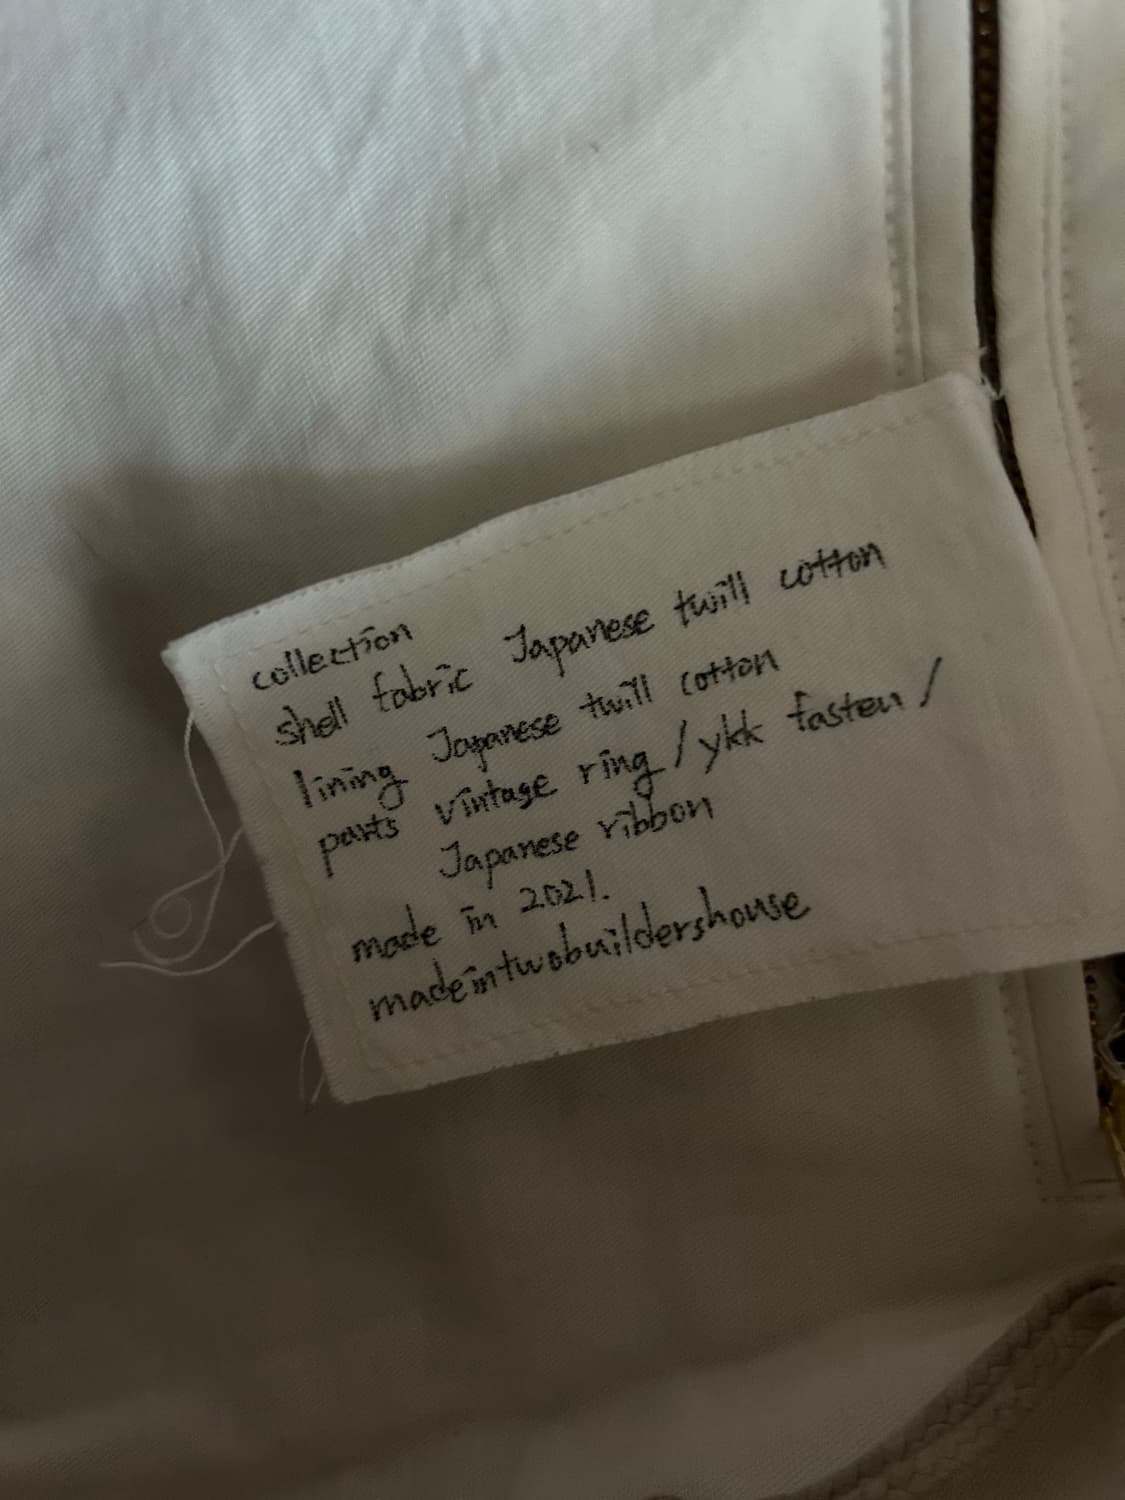 collection
shell fabric Japanese twill cotton
lining Japanese twill cotton
parts vintage ring / ykk fasten /
Japanese ribbon
made in 2021.
madeintwobuildershouse